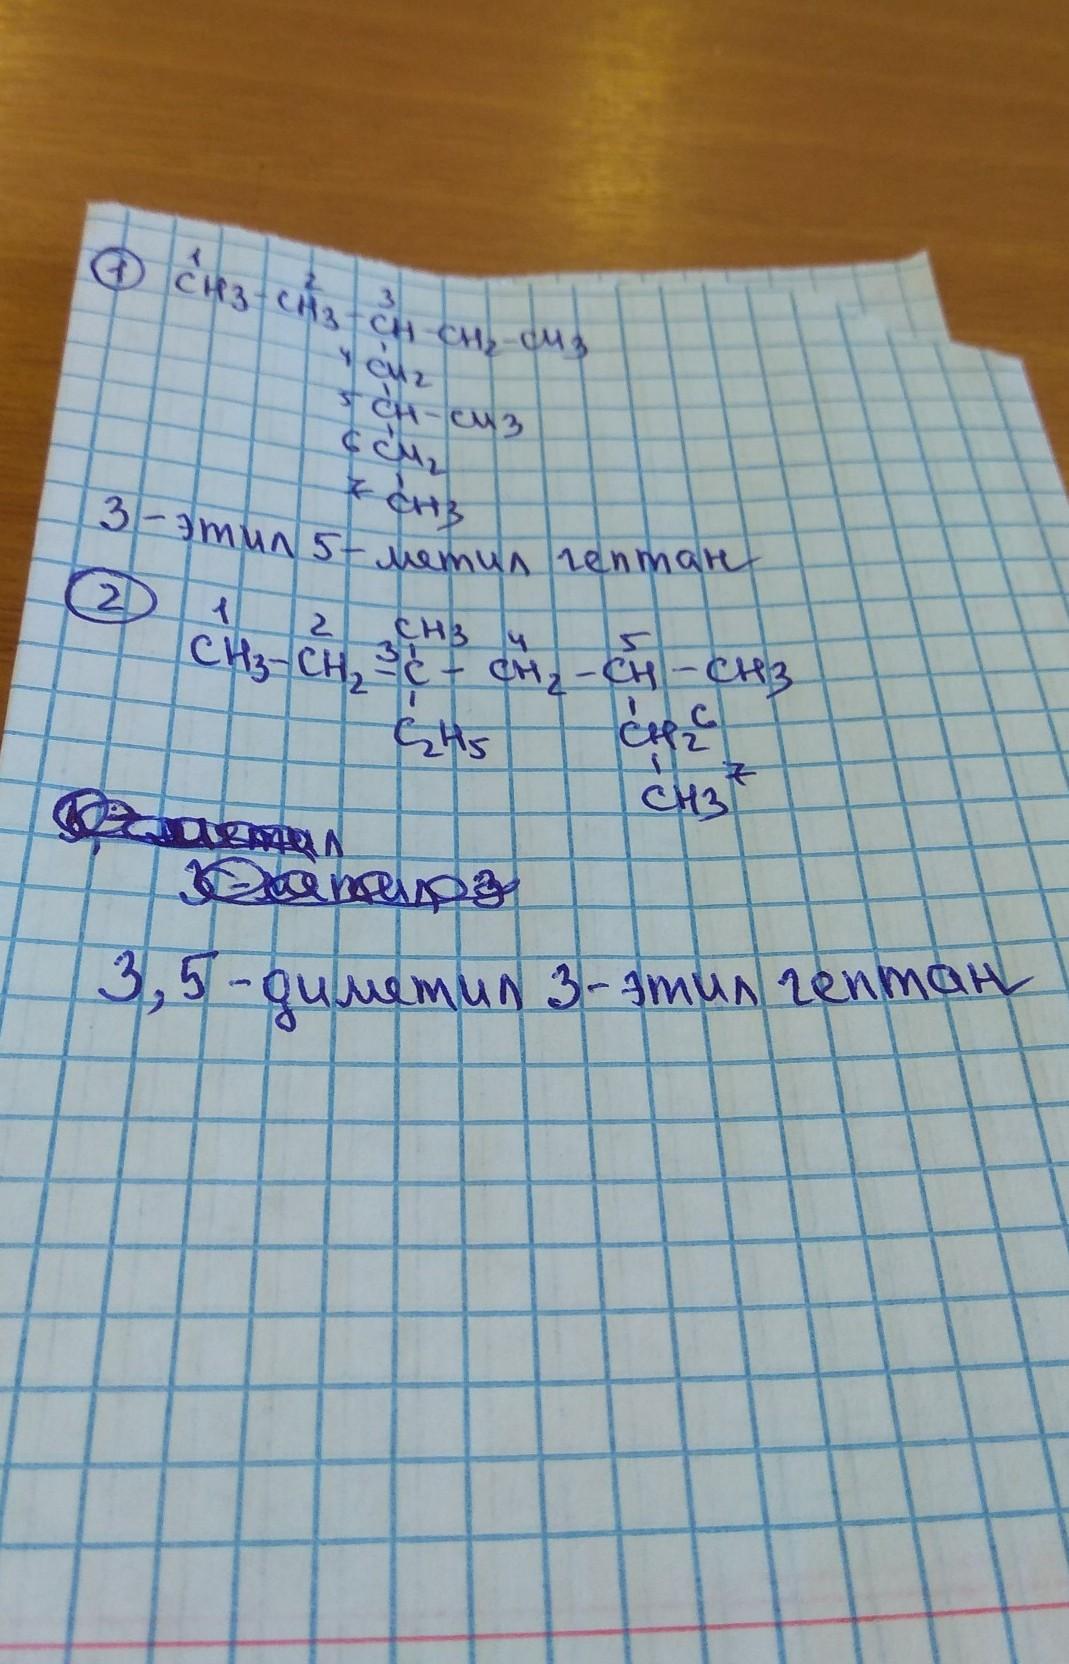 1 1 2 3
CH3-CH3-CH-CH2-CH3
4 CH2
5 CH-CH3
6 CH2
7 CH3
3-этил 5-метил гептан
2 1 2 CH3 4 5
CH3-CH2-3C-CH2-CH-CH3
C2H5 CH2 6
CH3 7
3,5-диметил 3-этил гептан